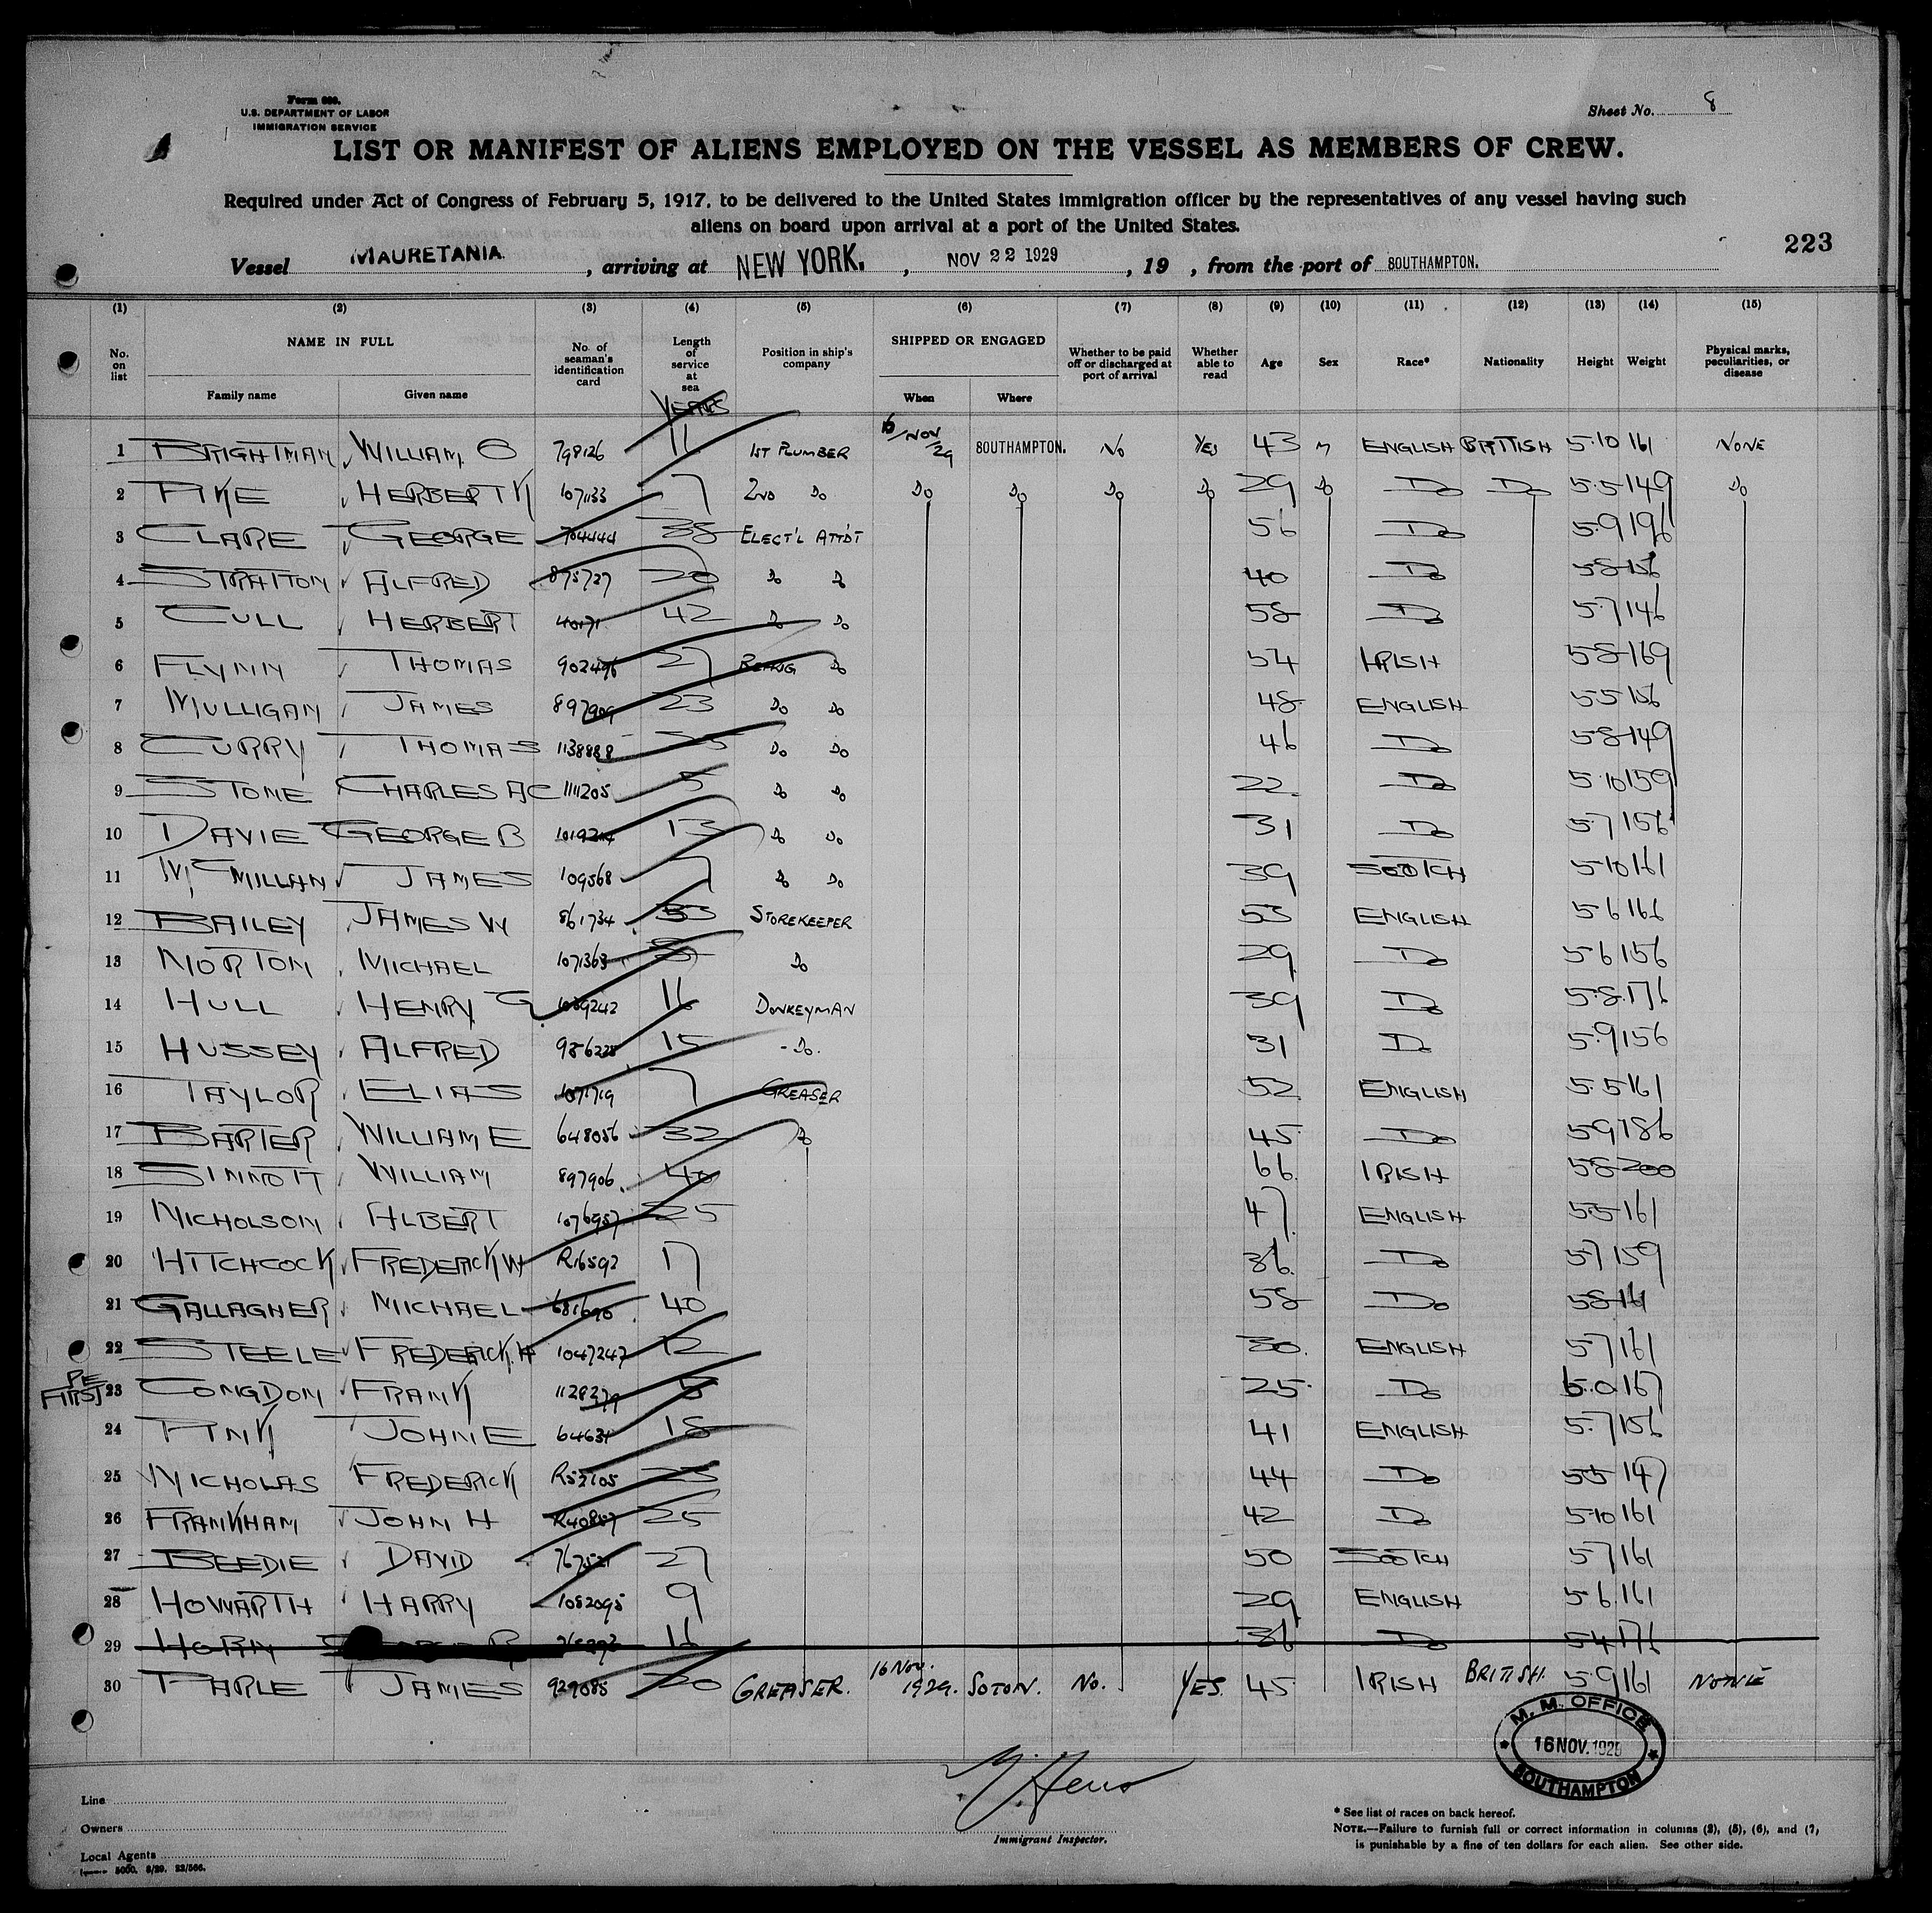 Form 680.
U.S. DEPARTMENT OF LABOR
IMMIGRATION SERVICE
Sheet No. 8
LIST OR MANIFEST OF ALIENS EMPLOYED ON THE VESSEL AS MEMBERS OF CREW.
Required under Act of Congress of February 5, 1917, to be delivered to the United States immigration officer by the representatives of any vessel having such
aliens on board upon arrival at a port of the United States.
223
Vessel MAURETANIA. , arriving at NEW YORK. , NOV 22 1929 , 19 , from the port of SOUTHAMPTON.
(1) (2) (3) (4) (5) (6) (7) (8) (9) (10) (11) (12) (13) (14) (15)
No. on list NAME IN FULL Family name Given name No. of seaman's identification card Length of service at sea Position in ship's company SHIPPED OR ENGAGED When Where Whether to be paid off or discharged at port of arrival Whether able to read Age Sex Race* Nationality Height Weight Physical marks, peculiarities, or disease
YEARS
1 BRIGHTMAN WILLIAM G 798126 11 1ST PLUMBER 16/NOV/29 SOUTHAMPTON. No YES 43 M ENGLISH BRITISH 5·10 161 NONE
2 PIKE HERBERT K 1071133 7 2ND Do Do Do Do Do 29 Do Do Do 5·5 149 Do
3 CLARE GEORGE 704444 38 ELECT'L ATT'DT 56 Do 5·9 196
4 STRATTON ALFRED 875727 20 Do Do 40 Do 5·8 156
5 CULL HERBERT 40171 42 Do Do 58 Do 5·7 146
6 FLYNN THOMAS 902496 27 REFRIG Do 54 IRISH 5·8 169
7 MULLIGAN JAMES 897909 23 Do Do 48 ENGLISH 5·5 156
8 CURRY THOMAS 1138888 Do Do 46 Do 5·8 149
9 STONE CHARLES A C 1111205 5 Do Do 22 Do 5·10 159
10 DAVIE GEORGE B 13 Do Do 31 Do 5·7 156
11 McMILLAN JAMES 109568 7 Do Do 39 SCOTCH 5·10 161
12 BAILEY JAMES W 861734 33 STOREKEEPER 53 ENGLISH 5·6 166
13 NORTON MICHAEL 1071363 Do 29 Do 5·6 156
14 HULL HENRY G 1089242 16 DONKEYMAN 39 Do 5·8 176
15 HUSSEY ALFRED 986228 15 - Do. 31 Do 5·9 156
16 TAYLOR ELIAS 1071719 7 GREASER 52 ENGLISH 5·5 161
17 BARTER WILLIAM E 648056 32 Do 45 Do 5·9 186
18 SINNOTT WILLIAM 897906 40 66 IRISH 5·8 200
19 NICHOLSON ALBERT 1076957 25 47 ENGLISH 5·5 161
20 HITCHCOCK FREDERICK W R16592 17 36 Do 5·7 159
21 GALLAGHER MICHAEL 681690 40 58 Do 5·8 161
22 STEELE FREDERICK H 1047247 12 30 ENGLISH 5·7 161
PE FIRST 23 CONGDON FRANK 1128279 5 25 Do 6·0 167
24 PINK JOHN E 64631 18 41 ENGLISH 5·7 156
25 NICHOLAS FREDERICK R52105 23 44 Do 5·5 147
26 FRANKHAM JOHN H R40857 25 42 Do 5·10 161
27 BEEDIE DAVID 767521 27 50 SCOTCH 5·7 161
28 HOWARTH HARRY 1052095 9 29 ENGLISH 5·6 161
29 HORN 16 36 Do 5·4 176
30 PARLE JAMES 929085 20 GREASER. 16 NOV. 1929. SOTON. No. YES. 45 IRISH BRITISH. 5·9 161 NONE
M. M. OFFICE
16 NOV. 1929
SOUTHAMPTON
Line
Owners
Local Agents
5000. 3/29. 22/566.
Immigrant Inspector.
* See list of races on back hereof.
NOTE.—Failure to furnish full or correct information in columns (3), (5), (6), and (7)
is punishable by a fine of ten dollars for each alien. See other side.